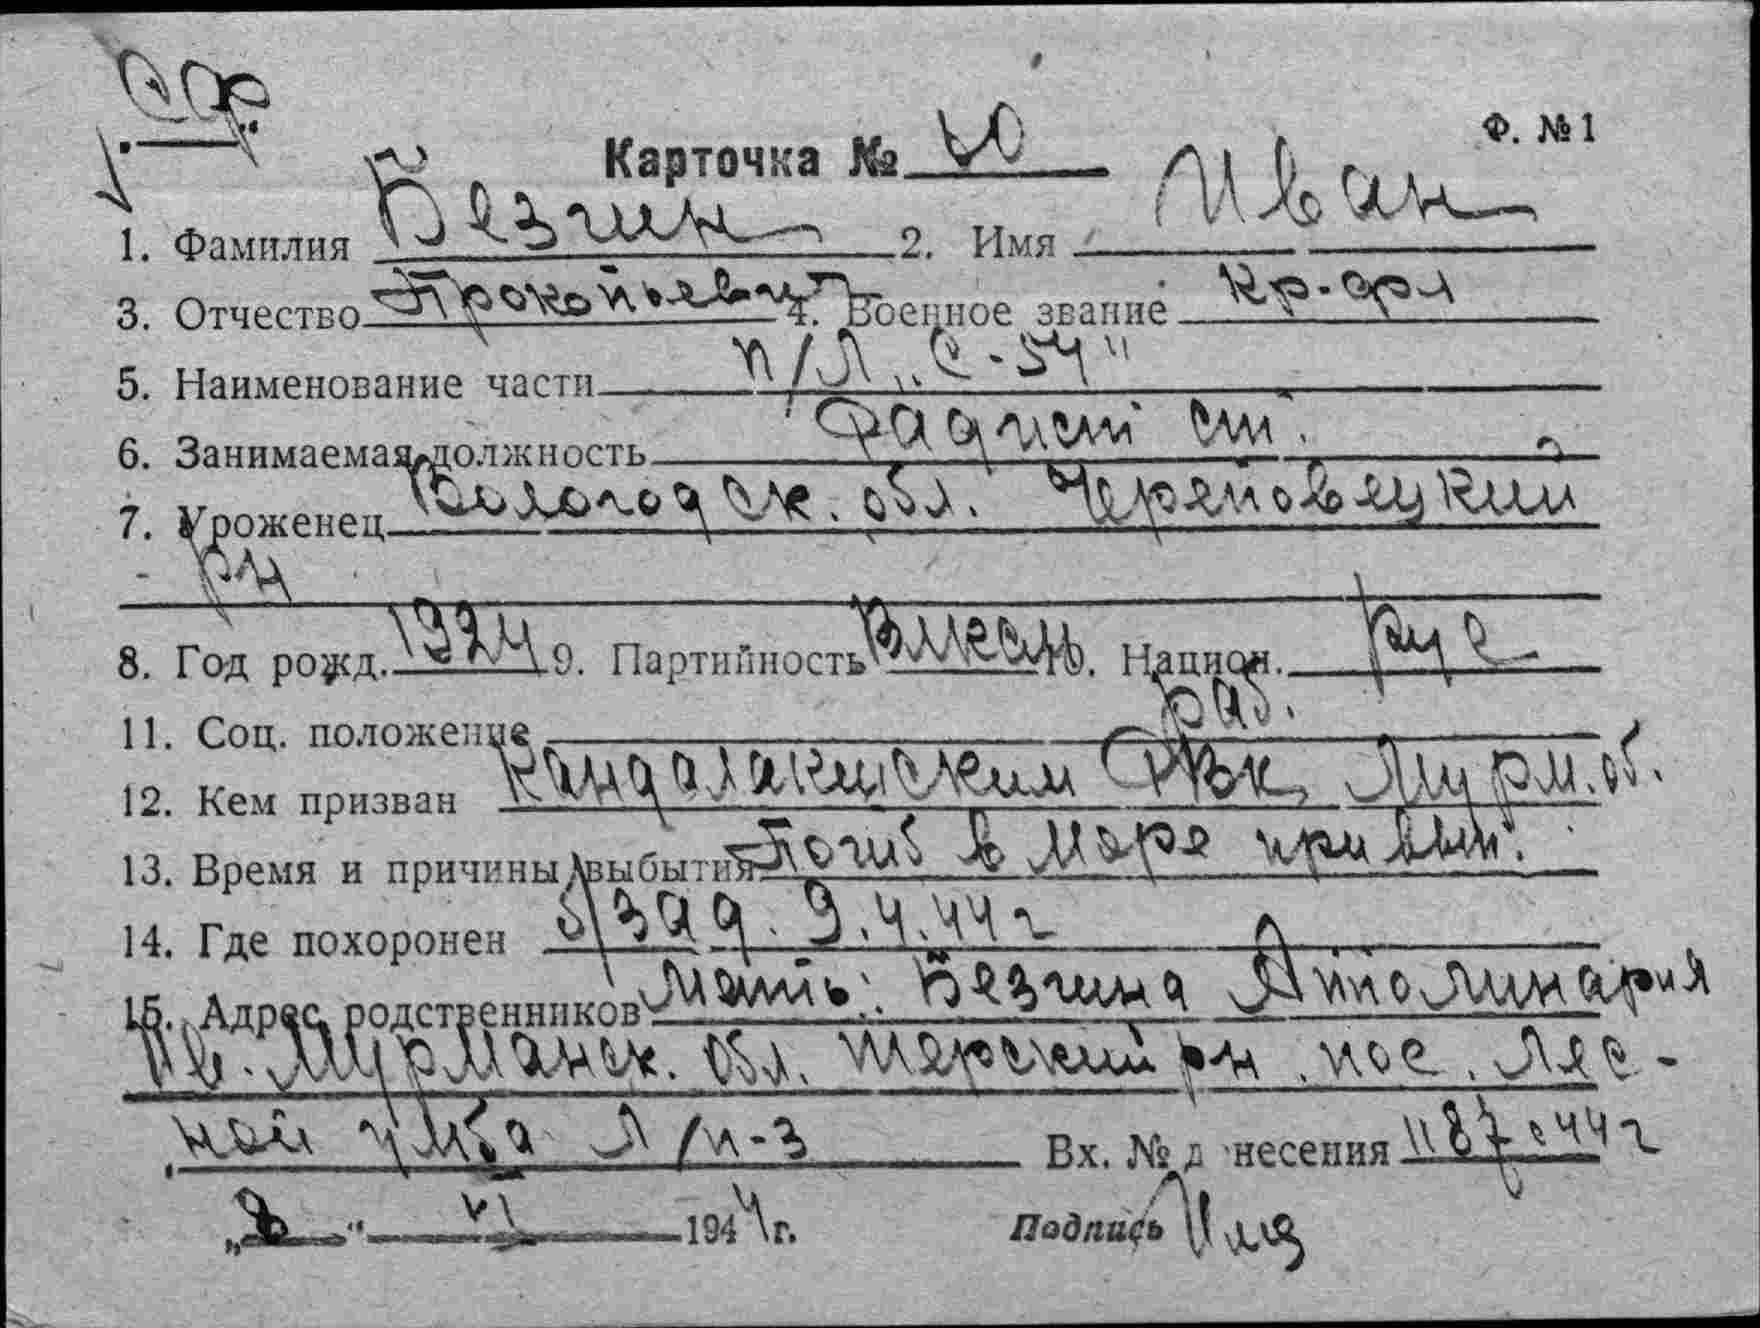 Ф. № 1
Карточка № 60
1. Фамилия Безгин 2. Имя Иван
3. Отчество Прокопьевич 4. Военное звание кр-фл
5. Наименование части п/л „С-54"
6. Занимаемая должность Радист ст.
7. Уроженец Вологодск. обл. Череповецкий
рн
8. Год рожд. 1924 9. Партийность влксм 10. Национ. рус
11. Соц. положение раб.
12. Кем призван Кандалакшским РВК, Мурм. об.
13. Время и причины выбытия Погиб в море при вып.
14. Где похоронен б/зад. 9.4.44 г
15. Адрес родственников Мать: Безгина Апполинария
Ив. Мурманск. обл. Терский рн. пос. Лес-
ной умба л/п-3 Вх. № д несения 1187с 44 г
„8" VI 1944 г. Подпись